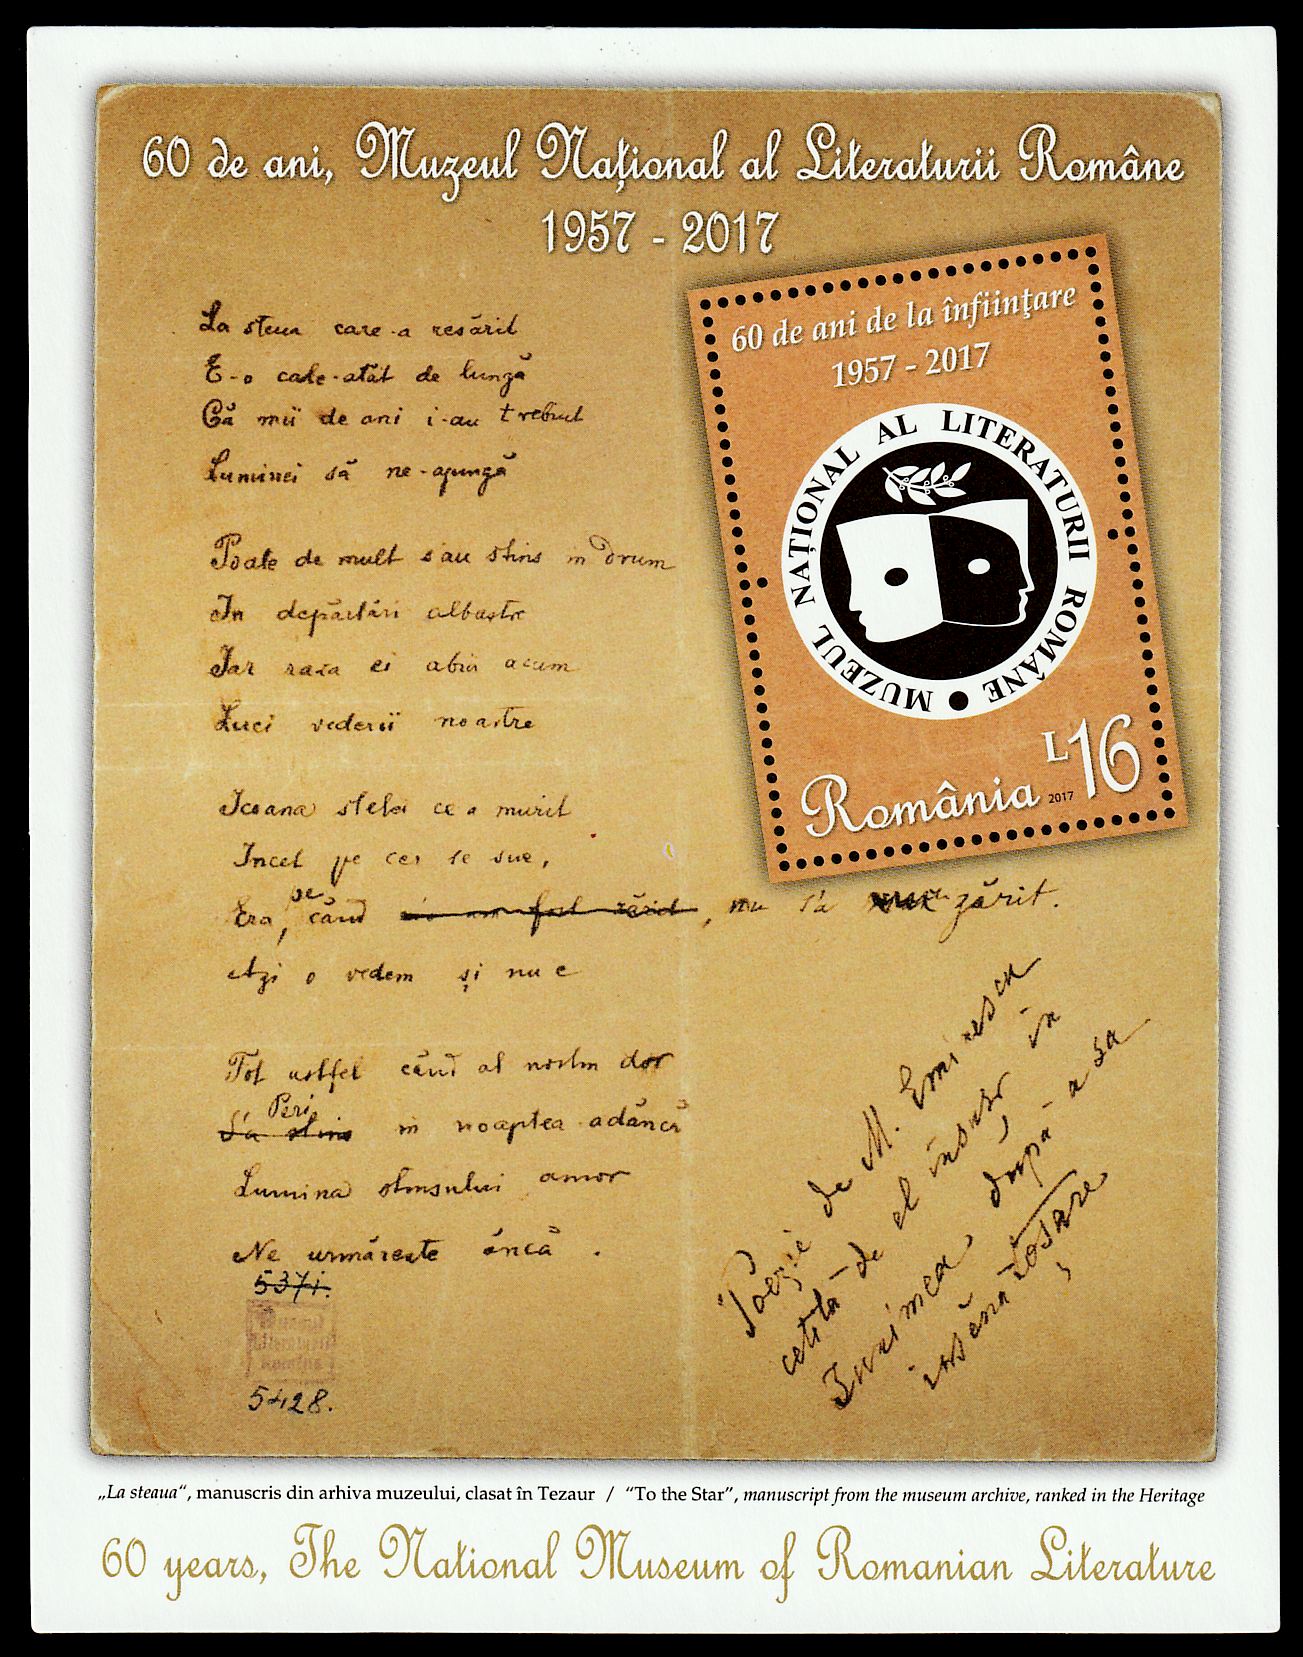 60 de ani, Muzeul Național al Literaturii Române
1957 - 2017
60 de ani de la înfiinţare
1957 - 2017
MUZEUL NAȚIONAL AL LITERATURII ROMÂNE
România 2017 L16
La steua care-a resărit
E-o cale-atât de lungă
Că mii de ani i-au trebuit
Luminei să ne-ajungă
Poate de mult s'au stins in drum
In depărtări albastre
Iar raza ei abia acum
Luci vederii noastre
Icoana stelei ce a murit
Incet pe cer se sue,
Era, pe când , nu s'a zărit.
Azi o vedem și nu e
Tot astfel când al nostru dor
Peri
S'a stins in noaptea adâncă
Lumina stinsului amor
Ne urmărește âncă.
5371.
Muzeul
Literaturii
Române
5428.
Poezie de M. Eminescu
cetită de el însuși în
Junimea după-a sa
însănătoșare
„La steaua“, manuscris din arhiva muzeului, clasat în Tezaur / “To the Star”, manuscript from the museum archive, ranked in the Heritage
60 years, The National Museum of Romanian Literature